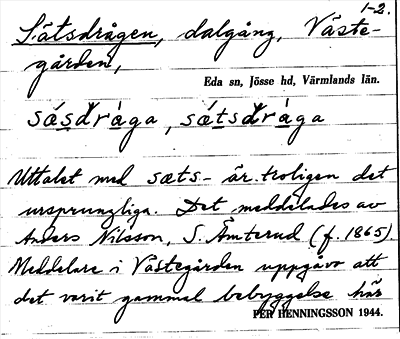 1-2.
Sätsdrågen, dalgång, Väste-
gården,
Eda sn, Jösse hd, Värmlands län.
sásdràga, sǽtsdràga
Uttalet med sæts- är troligen det
ursprungliga. Det meddelades av
Anders Nilsson, S. Ämterud (f. 1865)
Meddelare i Västegården uppgåvo att
det varit gammal bebyggelse här
PER HENNINGSSON 1944.